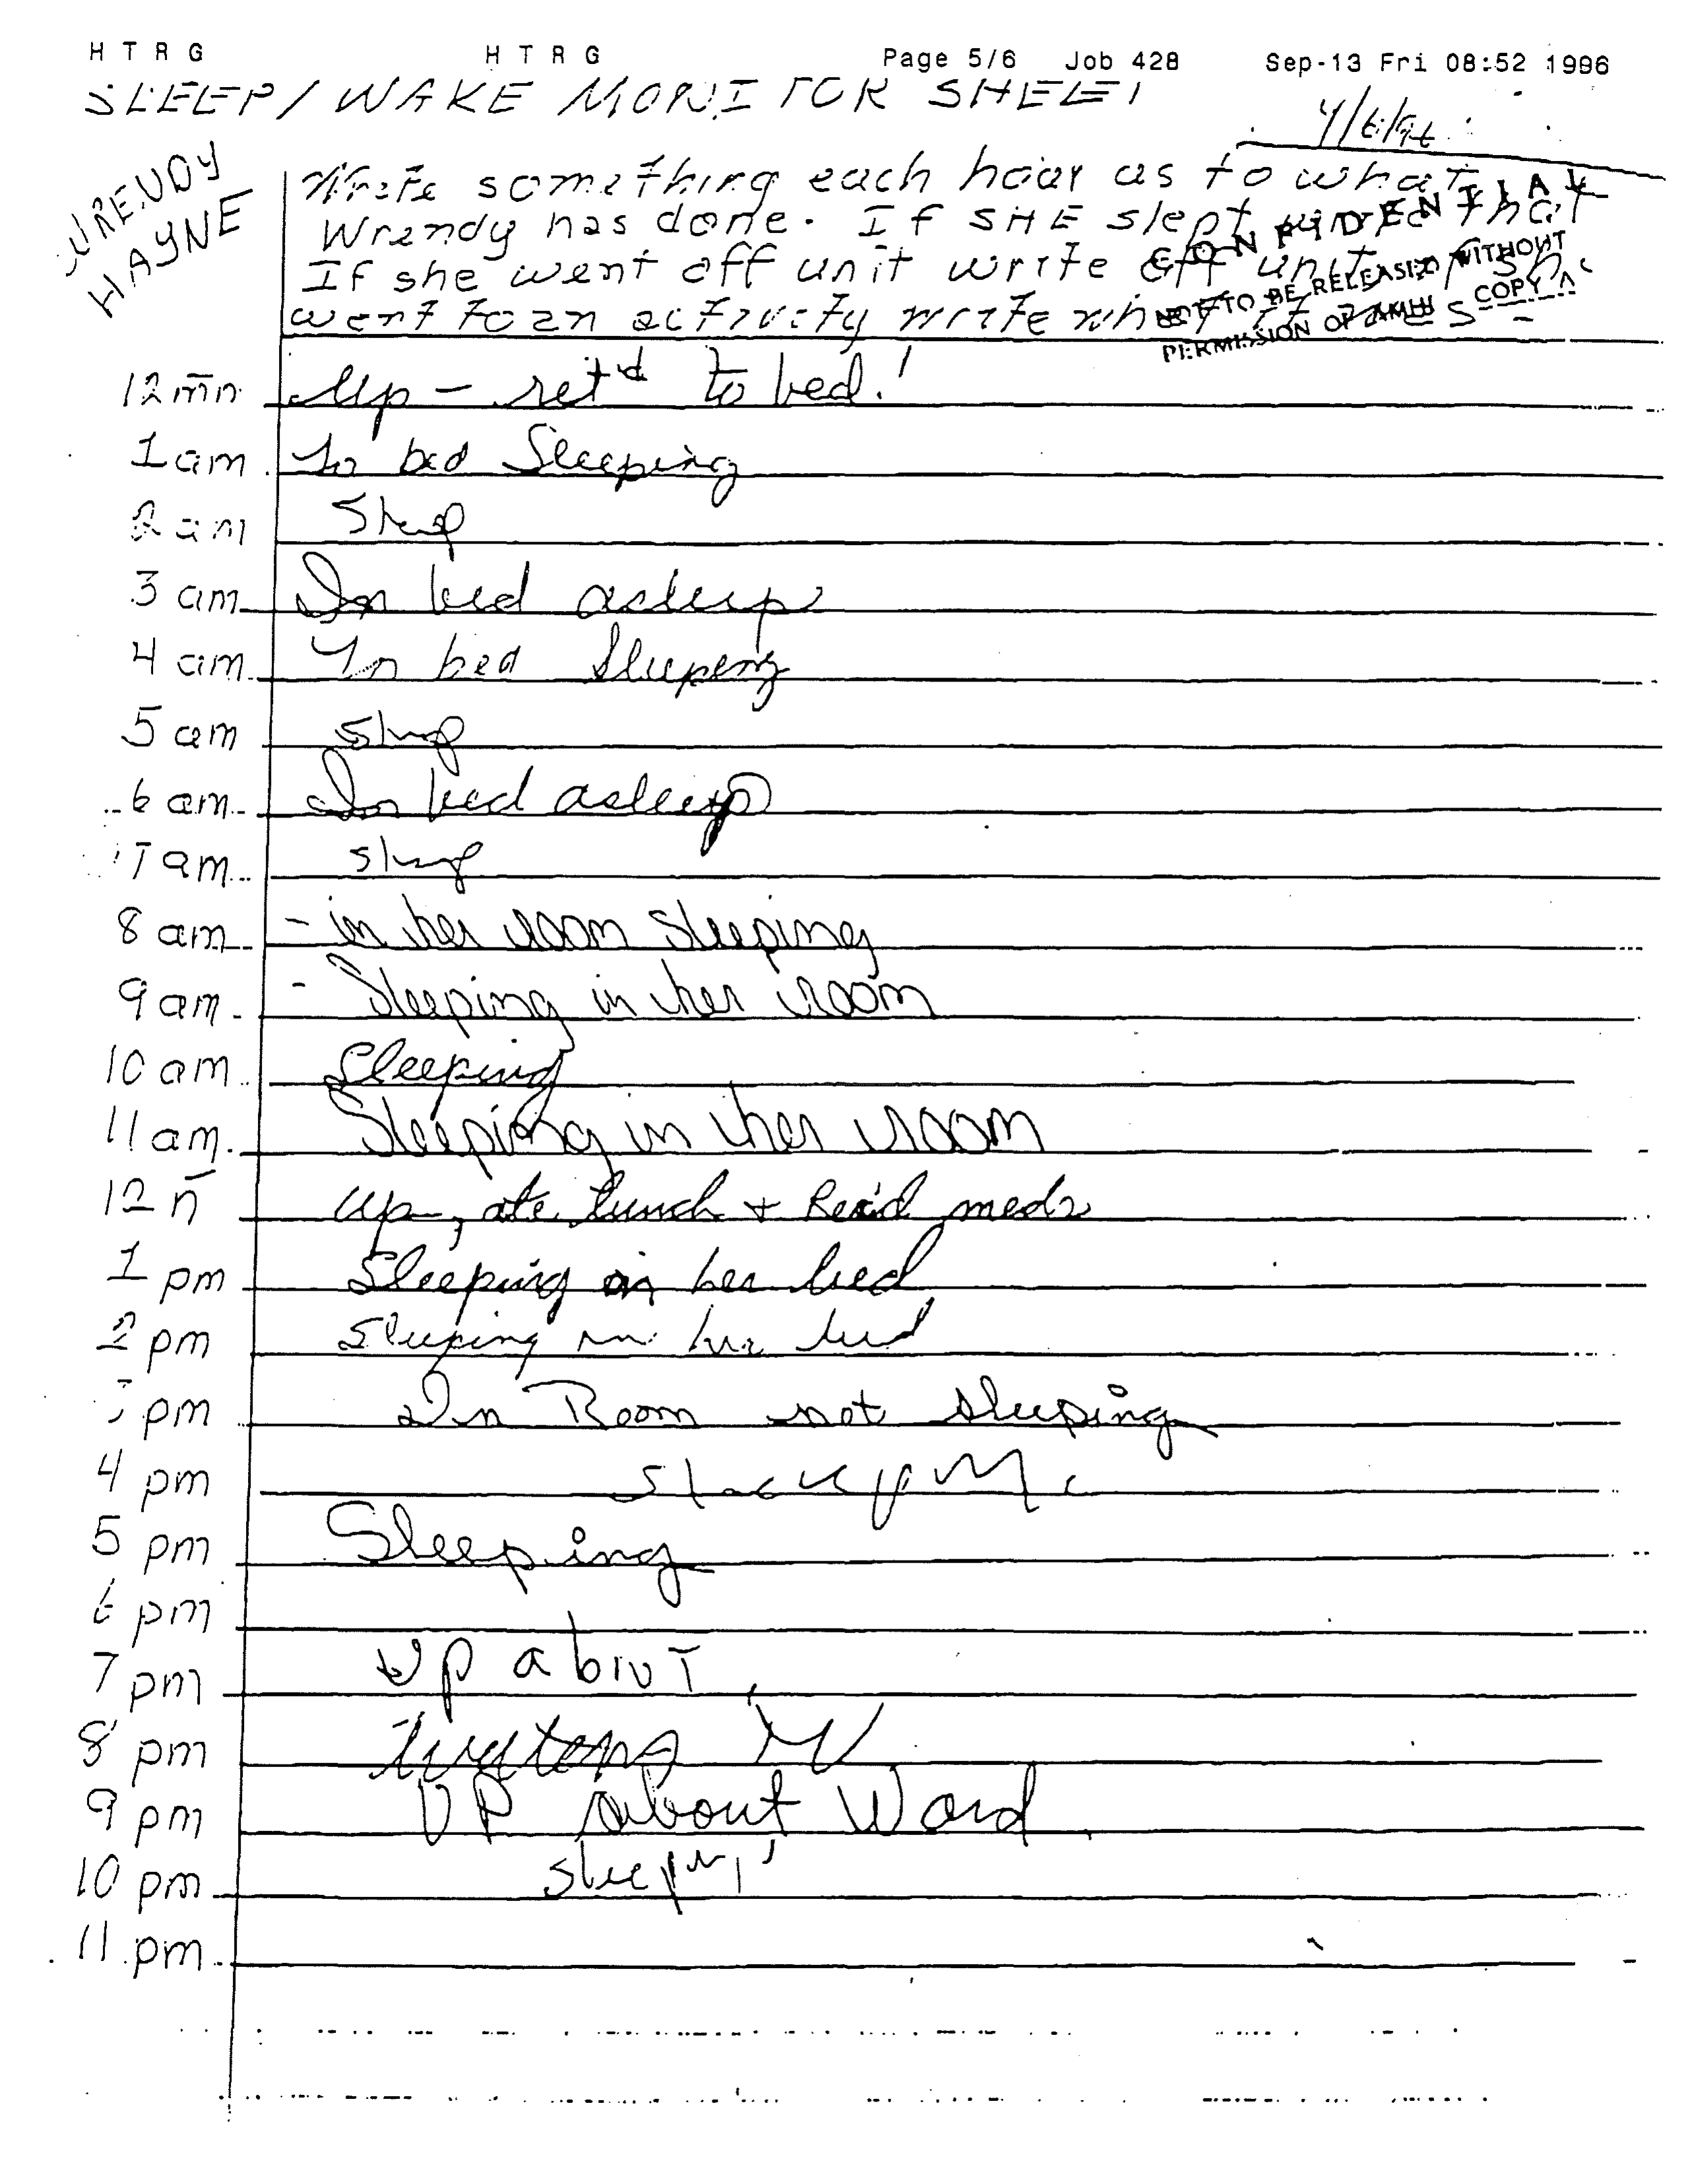 H T R G H T R G Page 5/6 Job 428 Sep-13 Fri 08:52 1996
SLEEP/WAKE MONITOR SHEET
WRENDY
HAYNE
Write something each hour as to what
Wrendy has done. If SHE slept that
If she went off unit write off unit
went to an activity write what it
CONFIDENTIAL
NOT TO BE RELEASED WITHOUT
PERMISSION OF AMHI COPY
12 mn Up - ret'd to bed!
1 am In bed Sleeping
2 am Sleep
3 am In bed asleep
4 am In bed Sleeping
5 am sleep
6 am In bed asleep
7 am sleep
8 am - in her room sleeping
9 am - Sleeping in her room
10 am Sleeping
11 am Sleeping in her room
12 n up, ate lunch + Rec'd meds
1 pm Sleeping in her bed
2 pm Sleeping in her bed
pm In Room not sleeping
4 pm
5 pm Sleeping
6 pm
7 pm Up about
8 pm
9 pm UP about Ward
10 pm sleeping
11 pm